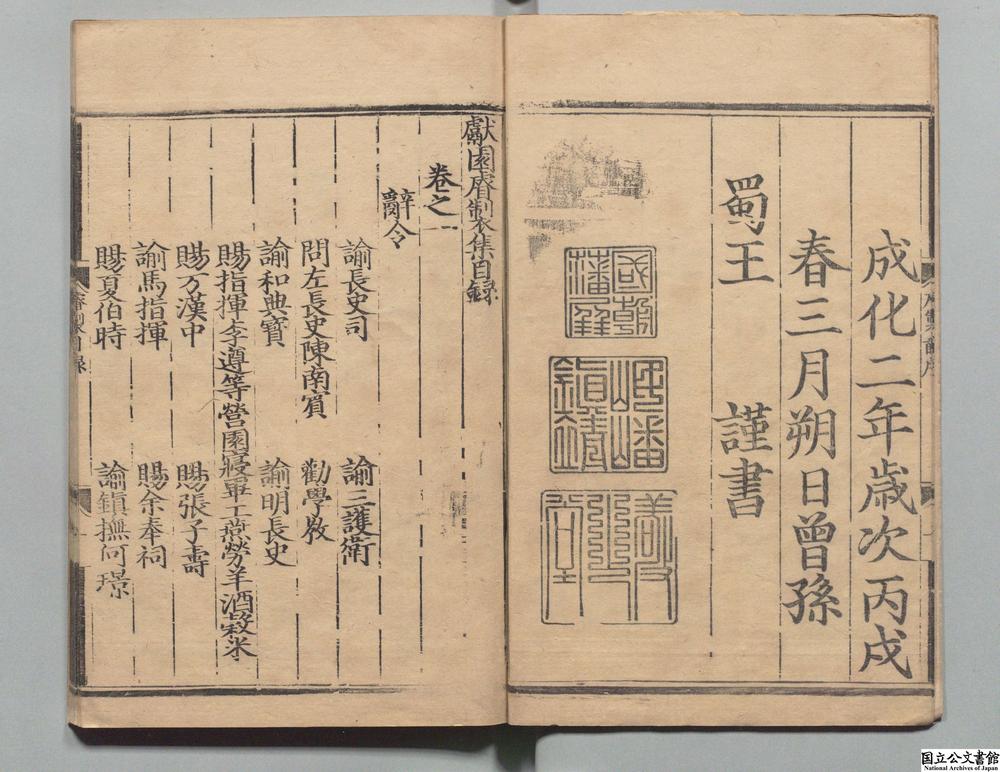 成化二年歲次丙戌
春三月朔日曾孫
蜀王　謹書
獻園睿製集目錄
卷之一
辭令
諭長史司　諭三護衛
問左長史陳南賓　勸學教
諭和典寶　諭明長史
賜指揮李遵等營園寢軍工燕勞羊酒穀米
賜方漢中　賜張子壽
諭馬指揮　賜余奉祠
賜夏伯時　諭鎮撫何璟
国立公文書館
National Archives of Japan